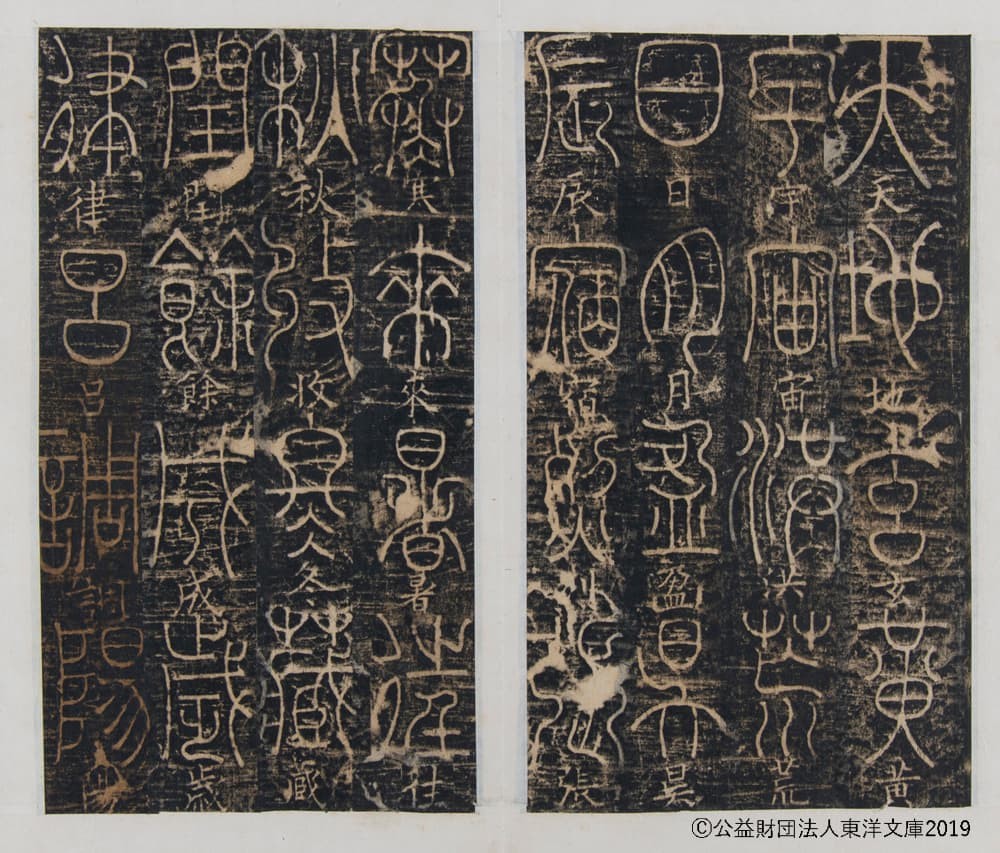 天天地地玄玄黄黄
宇宇宙宙洪洪荒荒
日日月月盈盈昃昃
辰辰宿宿列列張張
寒寒來來暑暑往往
秋秋收收冬冬藏藏
閏閏餘餘成成歲歲
律律呂呂調調陽陽
©公益財団法人東洋文庫2019